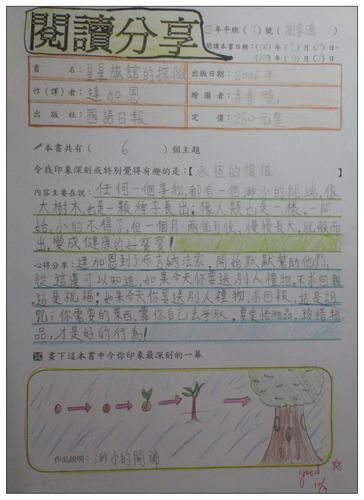 閱讀分享
年平班(7)號
閱讀本書日期:
書名:星星旅館的探險 出版日期:2006年
作(譯)者:達加恩 繪圖者:
出版社:國語日報 定價:250元整
本書共有( 6 )個主題
令我印象深刻或特別覺得有趣的是:【永恆的價值
內容主要在說:任何一個事物,都有一個渺小的開端,像
大樹木,也是一顆種子長出;像人類也是一樣,一開
始,小的不得了,但一個月、兩個月後,慢慢長大,
出,變成健康的好寶寶!
心得分享:達加恩到了布吉納法索,開始默默幫助他們,
從這邊可以知道,如果今天你要送別人禮物,不求回報,
這是祝福;如果今天你要送別人禮物,求回報,這是詛
咒;你需要的東西,靠你自己去爭取,要愛惜物品,珍惜物
品,才是好的行為!
畫下這本書中令你印象最深刻的一幕
作品說明:渺小的開端
good